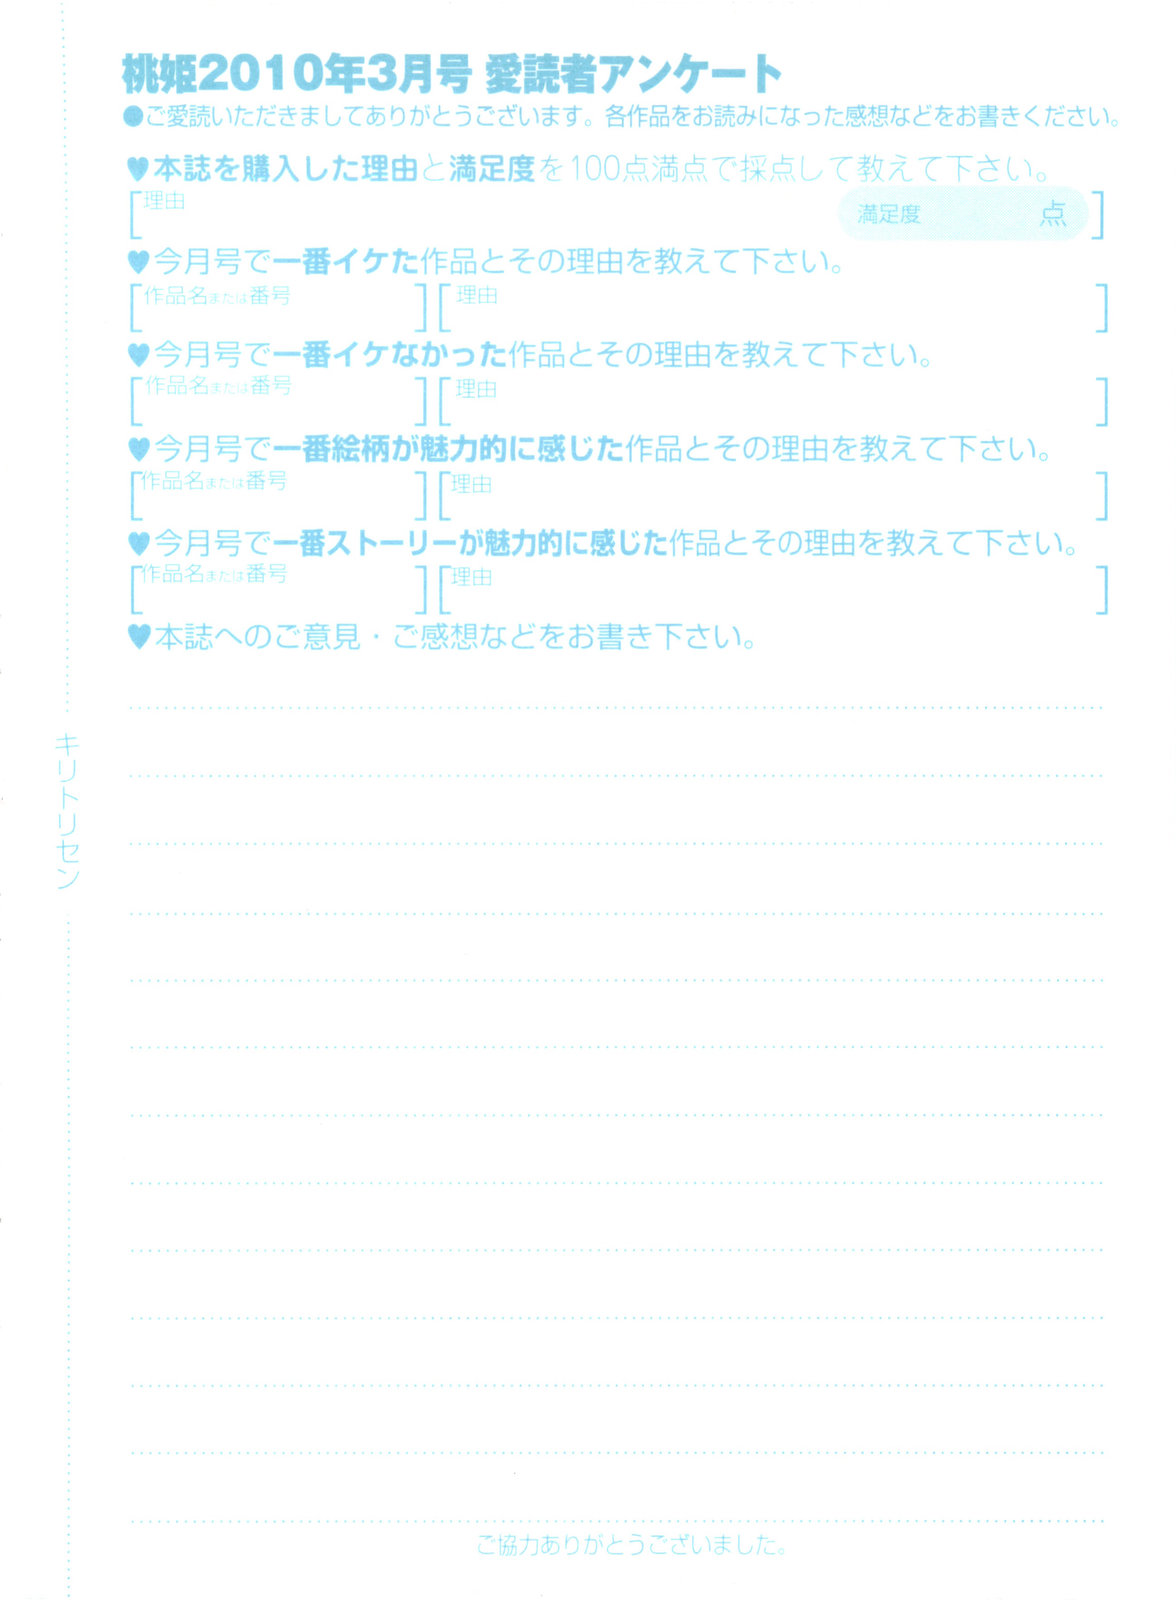 桃姫2010年3月号 愛読者アンケート
●ご愛読いただきましてありがとうございます。各作品をお読みになった感想などをお書きください。
♥本誌を購入した理由と満足度を100点満点で採点して教えて下さい。
理由 満足度 点
♥今月号で一番イケた作品とその理由を教えて下さい。
作品名または番号 理由
♥今月号で一番イケなかった作品とその理由を教えて下さい。
作品名または番号 理由
♥今月号で一番絵柄が魅力的に感じた作品とその理由を教えて下さい。
作品名または番号 理由
♥今月号で一番ストーリーが魅力的に感じた作品とその理由を教えて下さい。
作品名または番号 理由
♥本誌へのご意見・ご感想などをお書き下さい。
キリトリセン
ご協力ありがとうございました。